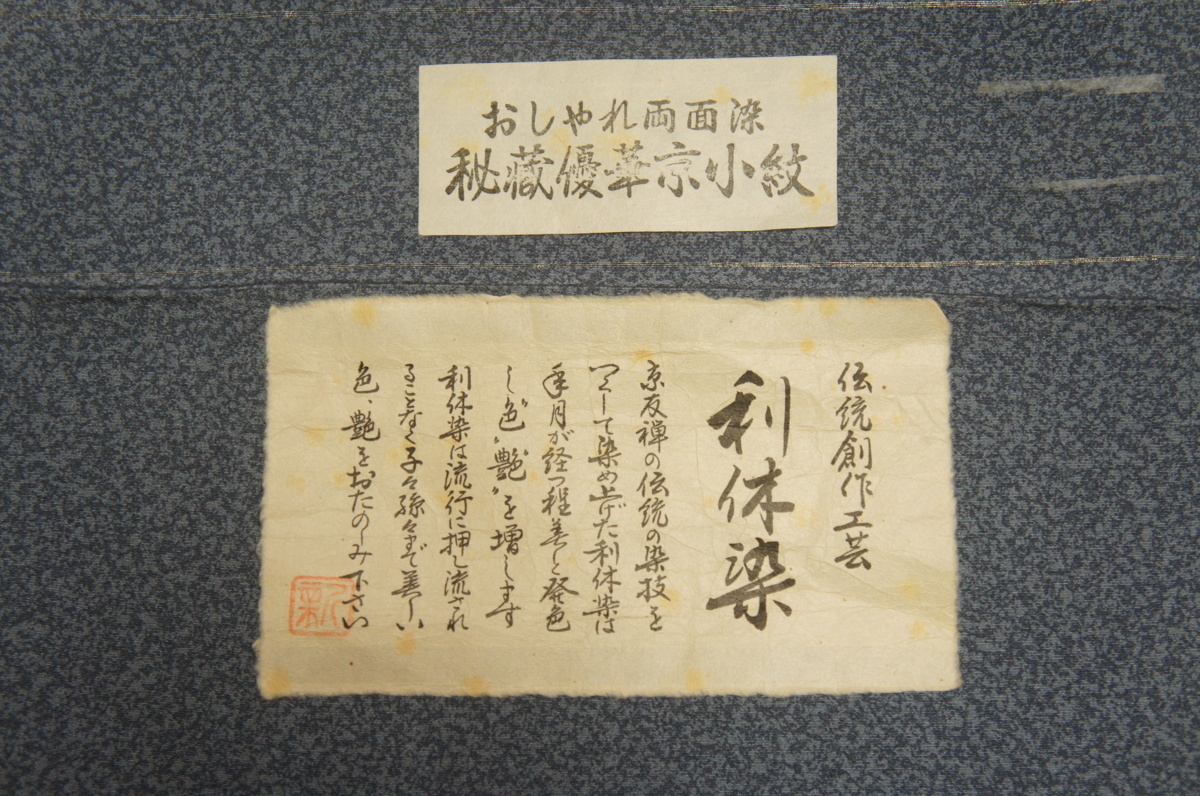 おしゃれ両面染
秘蔵優華京小紋
伝統創作工芸
利休染
京友禅の伝統の染技を
つくして染め上げた利休染は
年月が経つ程美しく発色
し〝色〟〝艶〟を増します
利休染は流行に押し流され
ることなく子々孫々まで美しい
色、艶をおたのしみ下さい